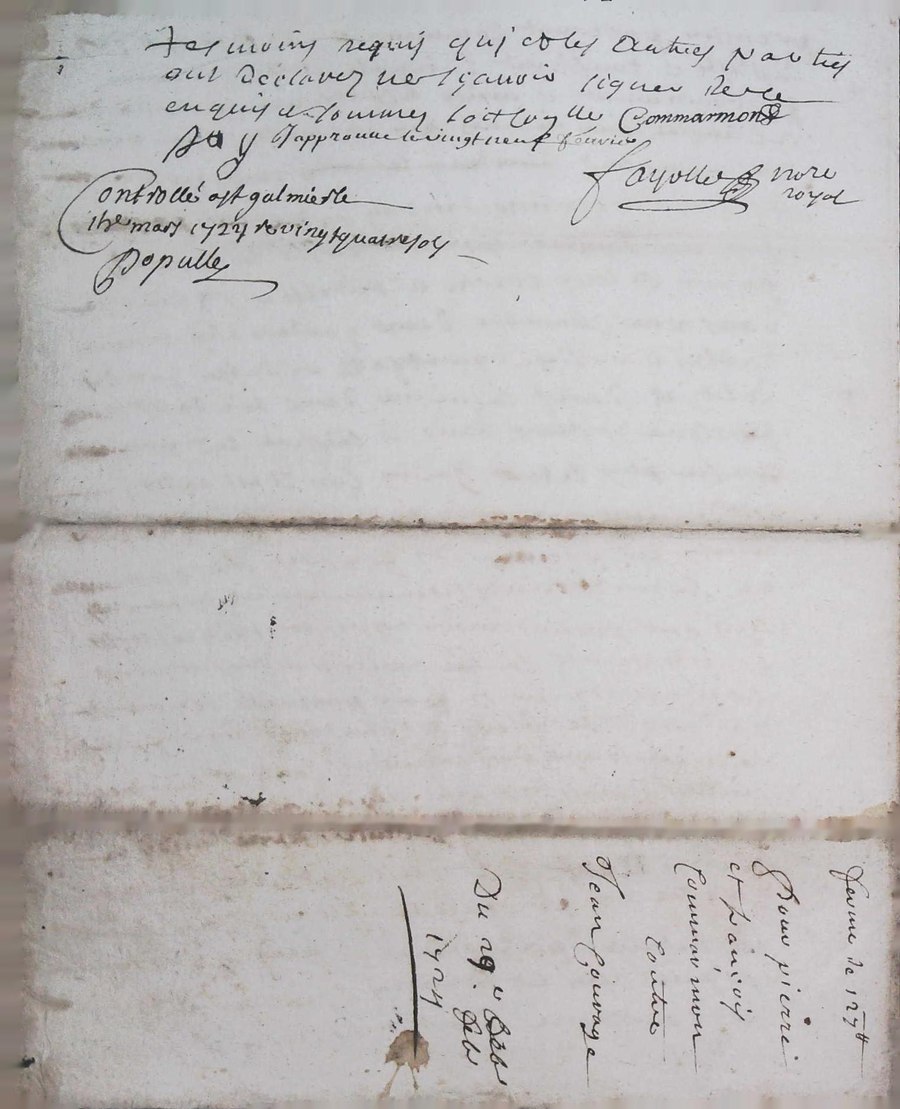 tesmoins requis qui et les autres parties
ont declarez ne sçavoir signer de ce
enquis et sommez soit Commarmond
Jay J'approuve le vingt neuf fevrier
fayolle nore
royal
Controllé a st galmier le
mars 1724 R vingt quatre sols
Popullé
ferme de 127#
Pour pierre
et françois
Commarmon
Contre
Jean Courage
Du 29e feb
1724